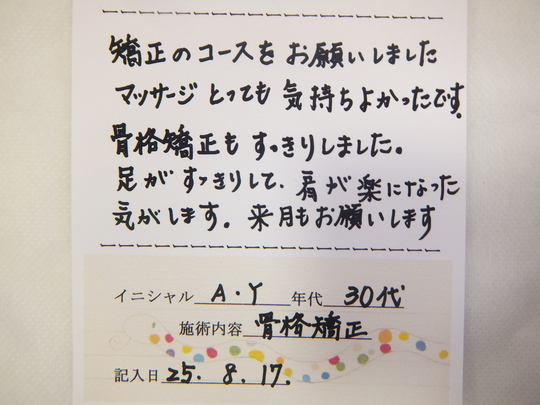 矯正のコースをお願いしました
マッサージとっても気持ちよかったです。
骨格矯正もすっきりしました。
足がすっきりして、肩が楽になった
気がします。来月もお願いします
イニシャル A・Y 年代 30代
施術内容 骨格矯正
記入日 25. 8. 17.